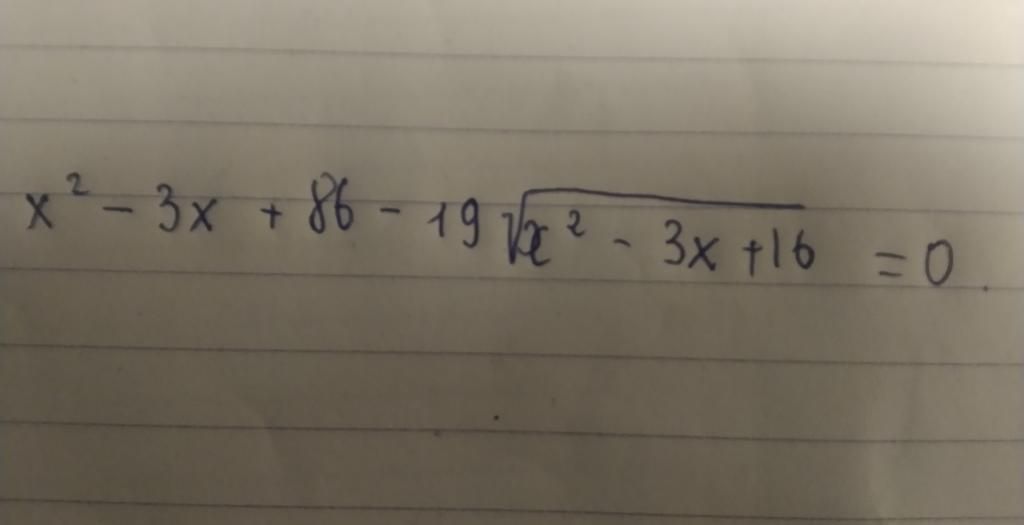 x² - 3x + 86 - 19√(x² - 3x + 16) = 0.